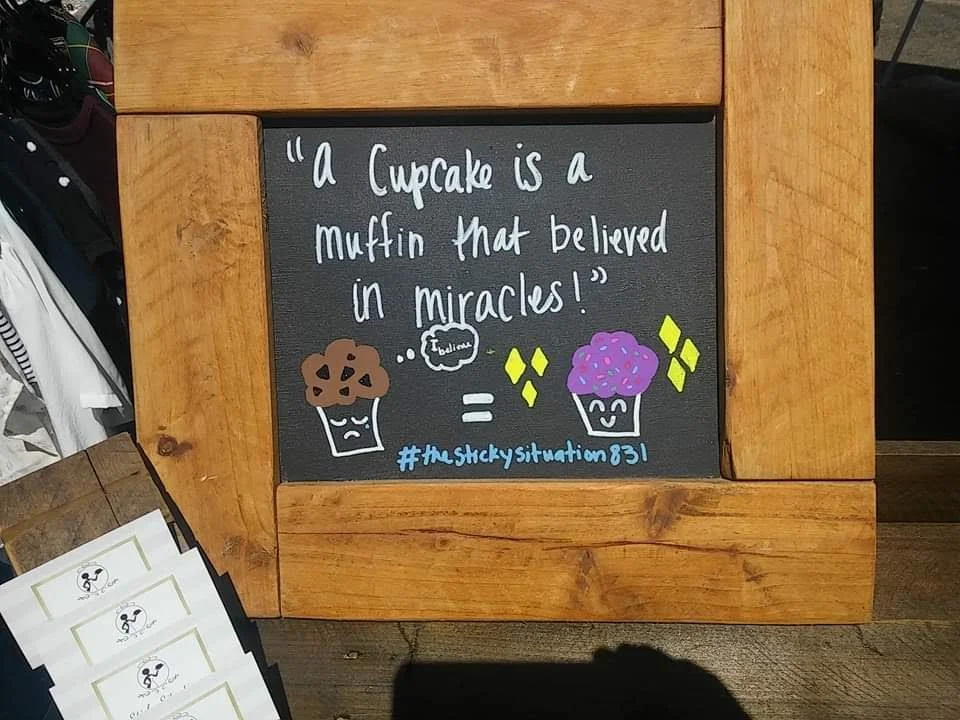 "a Cupcake is a
muffin that believed
in miracles!"
I
believe
=
#thestickysituation831